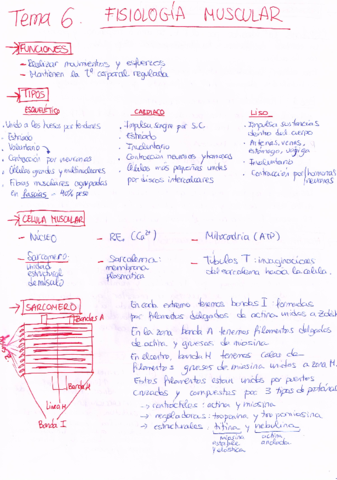 Tema 6. FISIOLOGÍA MUSCULAR
FUNCIONES
- Realizar movimientos y esfuerzos
- Mantienen la Tª corporal regulada
TIPOS
ESQUELÉTICO
. Unido a los huesos por tendones
. Estriado
. Voluntario
. Contracción por neuronas
. Células grandes y multinucleares
. Fibras musculares agrupadas
en fascias - 40% peso
CARDIACO
. Impulsa sangre por S.C.
. Estriado
. Involuntario
. Contracción neuronas y hormonas
. Células más pequeñas unidas
por discos intercalares
LISO
. Impulsa sustancias
dentro del cuerpo
. Arterias, venas,
estómago, vejiga
. Involuntario
. Contracción por hormonas/
neuronas
CÉLULA MUSCULAR
- NÚCLEO
- RE. (Ca²⁺)
- Mitocondria (ATP)
- Sarcómero:
unidad
estructural
de músculo
- Sarcolema:
membrana
plasmática
- Túbulos T: invaginaciones
del sarcolema hacia la célula.
SARCÓMERO
Bandas A
Banda H
Línea M
Banda I
En cada extremo tenemos bandas I formadas
por filamentos delgados de actina unidos a Z
En la zona banda A tenemos filamentos delgados
de actina y gruesos de miosina
En el centro, banda H tenemos colas de
filamentos gruesos de miosina unidos a zona M.
Estos filamentos están unidos por puentes
cruzados y compuestos por 3 tipos de proteínas
→ contráctiles: actina y miosina
→ reguladoras: troponina y tropomiosina
→ estructurales: titina y nebulina
miosina
estable
y elástica
actina
anclada